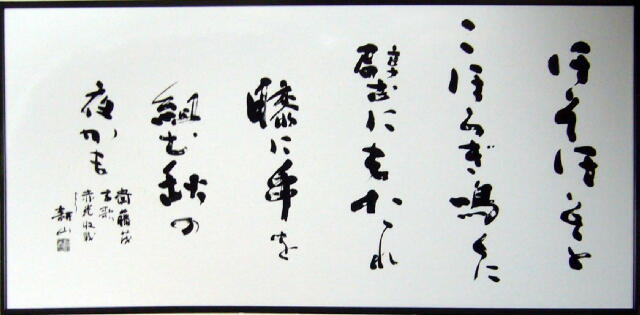 ほそほそと
こほろぎ鳴くに
壁にもたれ
膝に手を
組む秋の
夜かも
斎藤茂
吉歌
赤光収載
耕山